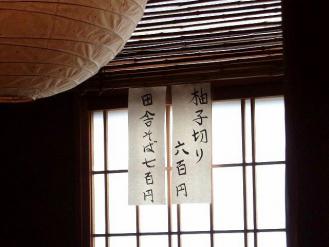 柚子切り
六百円
田舎そば七百円